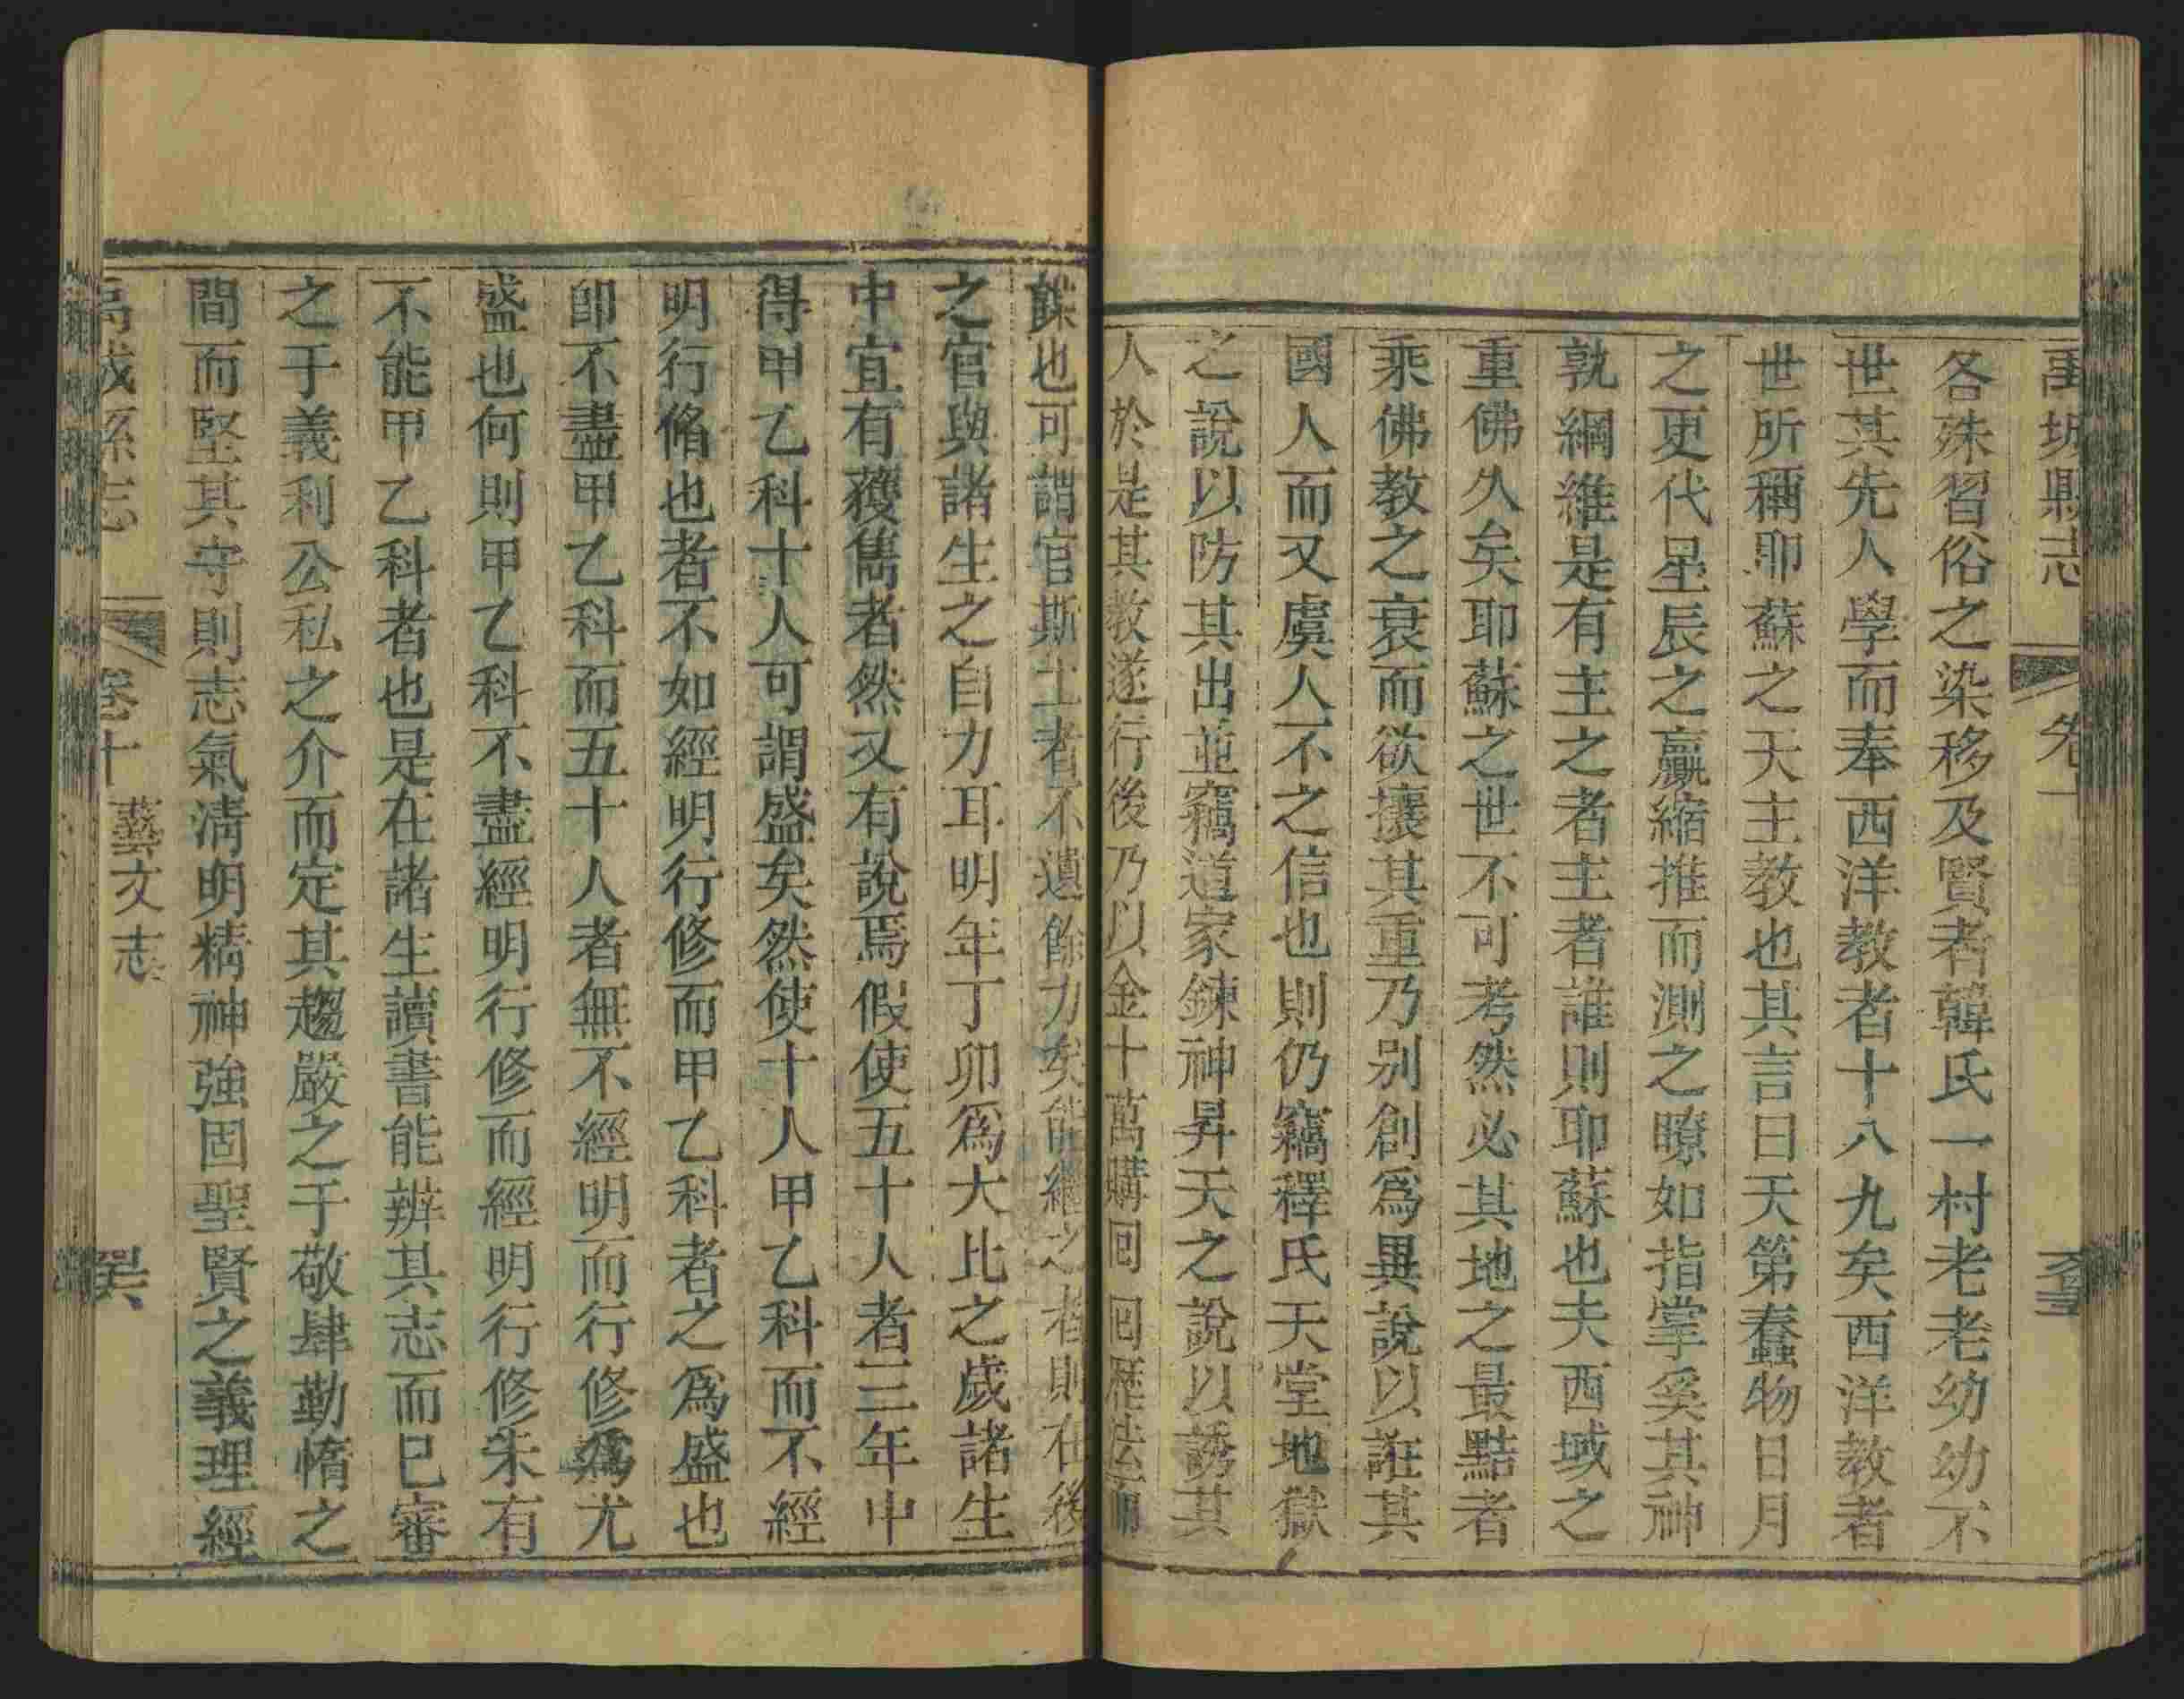 禹城縣志
各殊習俗之染移及賢者韓氏一村老老幼幼不
世其先人學而奉西洋教者十八九矣西洋教者
世所稱耶蘇之天主教也其言曰天第蠢物日月
之更代星辰之贏縮推而測之瞭如指掌奚其神
孰綱維是有主之者主者誰則耶蘇也夫西域之
重佛久矣耶蘇之世不可考然必其地之最黠者
乘佛教之衰而欲攘其重乃别創爲異說以誑其
國人而又虞人不之信也則仍竊釋氏天堂地獄
之說以防其出並竊道家鍊神昇天之說以誘其
人於是其教遂行後乃以金十萬購回回歷法而
餘也可謂官斯土者不遺餘力矣能繼之者則在後
之官與諸生之自力耳明年丁卯爲大比之歲諸生
中宜有獲雋者然又有說焉假使五十人者三年中
得甲乙科十人可謂盛矣然使十人甲乙科而不經
明行脩也者不如經明行修而甲乙科者之爲盛也
卽不盡甲乙科而五十人者無不經明而行修爲尤
盛也何則甲乙科不盡經明行修而經明行修未有
不能甲乙科者也是在諸生讀書能辨其志而已審
之于義利公私之介而定其趨嚴之于敬肆勤惰之
間而堅其守則志氣淸明精神強固聖賢之義理經
禹城縣志 卷十 藝文志